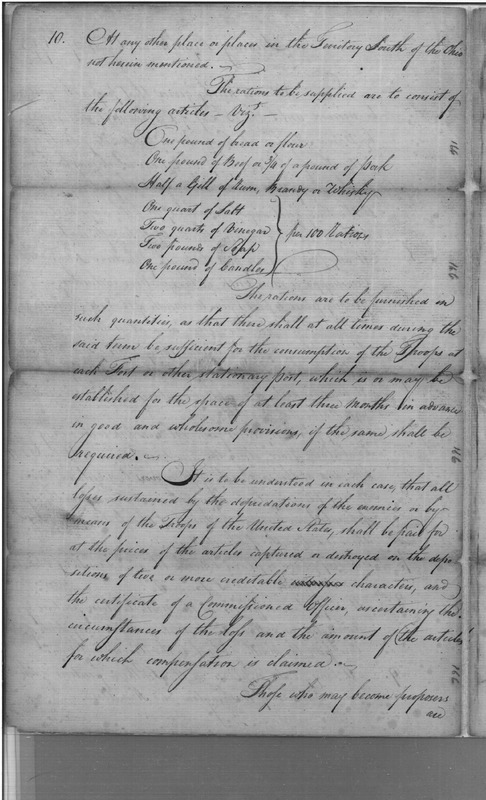 10. At any other place or places in the Territory South of the Ohio
not herein mentioned.
The rations to be supplied are to consist of
the following articles - Vizt. -
One pound of bread or flour
One pound of Beef or 3/4 of a pound of Pork
Half a Gill of Rum, Brandy or Whiskey
One quart of Salt
Two quarts of Vinegar
Two pounds of Soap
One pound of Candles
per 100 Rations
The rations are to be furnished in
such quantities, as that there shall at all times during the
said term be sufficient for the consumption of the Troops at
each Fort or other stationary post, which is or may be
established for the space of at least three Months in advance
in good and wholesome provisions, if the same shall be
required.
It is to be understood in each case, that all
losses sustained by the depredations of the enemies or by
means of the Troops of the United States, shall be paid for
at the prices of the articles captured or destroyed on the depo-
sitions of two or more creditable characters, and
the certificate of a Commissioned Officer, ascertaining the
circumstances of the loss and the amount of the articles
for which compensation is claimed.
Those who may become proposers
are